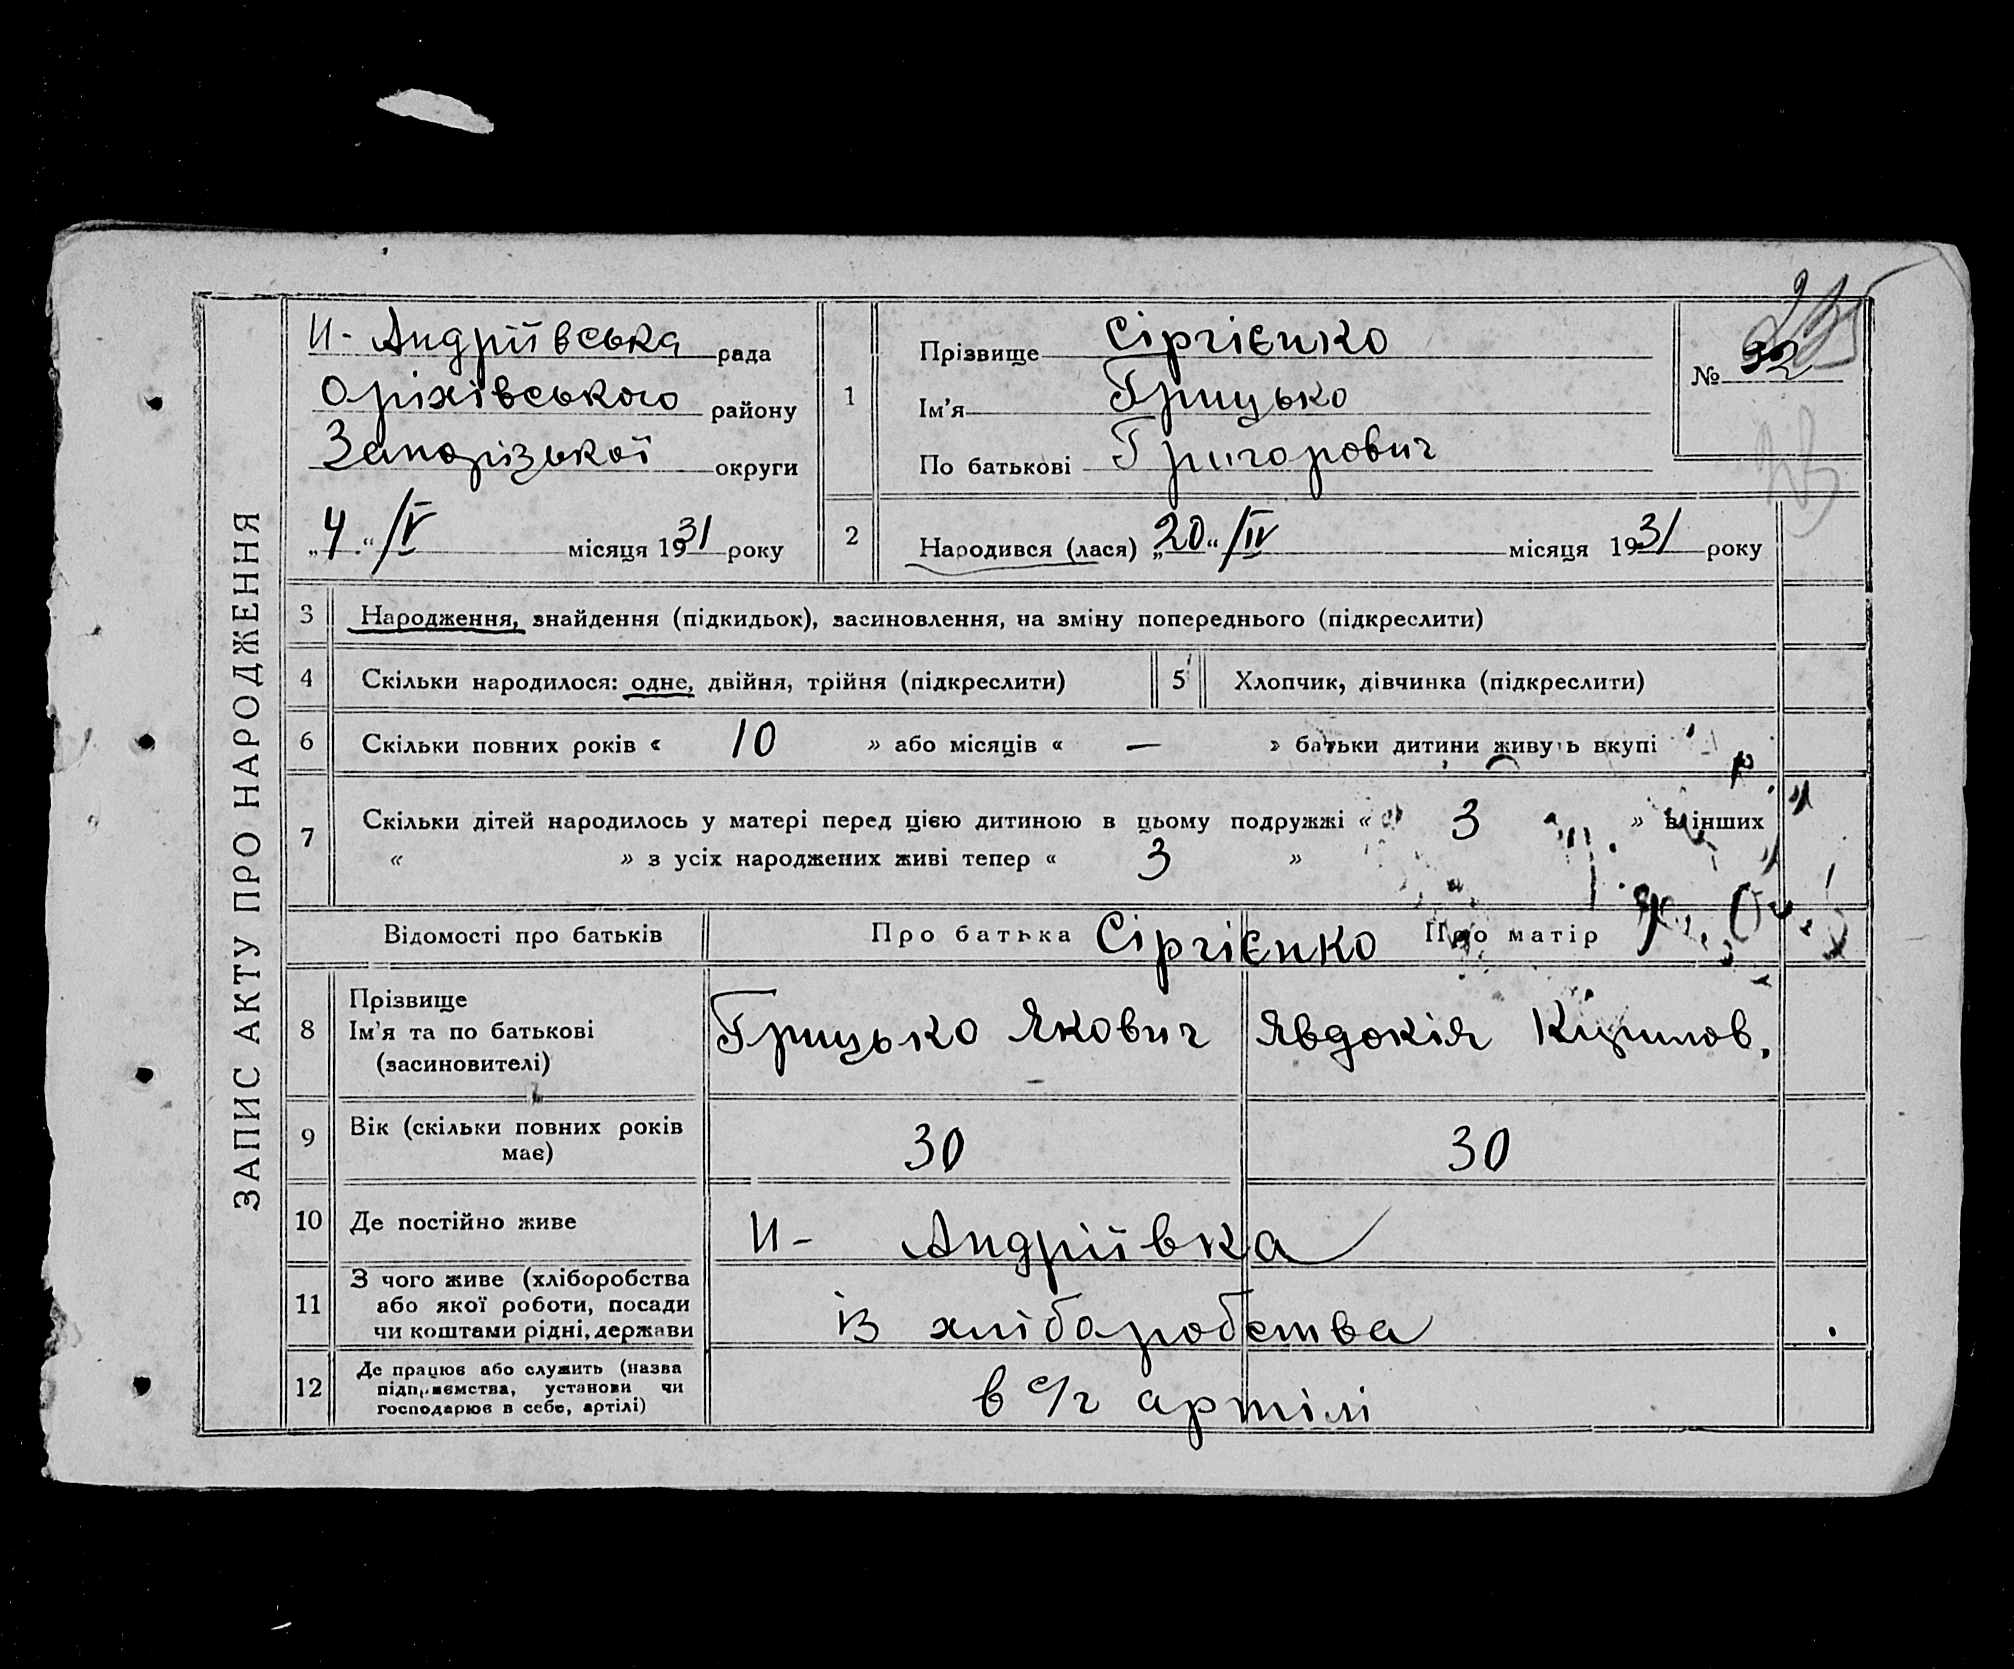 ЗАПИС АКТУ ПРО НАРОДЖЕННЯ
Н- Андріївська рада
Оріхівського району
Запорізької округи
„4“ /V місяця 1931 року
1
Прізвище Сіргієнко
Ім'я Грицько
По батькові Григорович
№ 32
2 Народився (лася) „20“ /IV місяця 1931 року
3 Народження, знайдення (підкидьок), засиновлення, на зміну попереднього (підкреслити)
4 Скільки народилося: одне, двійня, трійня (підкреслити) 5 Хлопчик, дівчинка (підкреслити)
6 Скільки повних років « 10 » або місяців « — » батьки дитини живуть вкупі
7 Скільки дітей народилось у матері перед цією дитиною в цьому подружжі « 3 » в інших
« » з усіх народжених живі тепер « 3 »
Відомості про батьків Про батька Сіргієнко Про матір
8 Прізвище
Ім'я та по батькові
(засиновителі)
Грицько Якович Явдокія
9 Вік (скільки повних років
має)
30 30
10 Де постійно живе Н- Андріївка
11 З чого живе (хліборобства
або якої роботи, посади
чи коштами рідні, держави
із хліборобства
12 Де працює або служить (назва
підприємства, установи чи
господарює в себе, артілі)
в с/г артілі